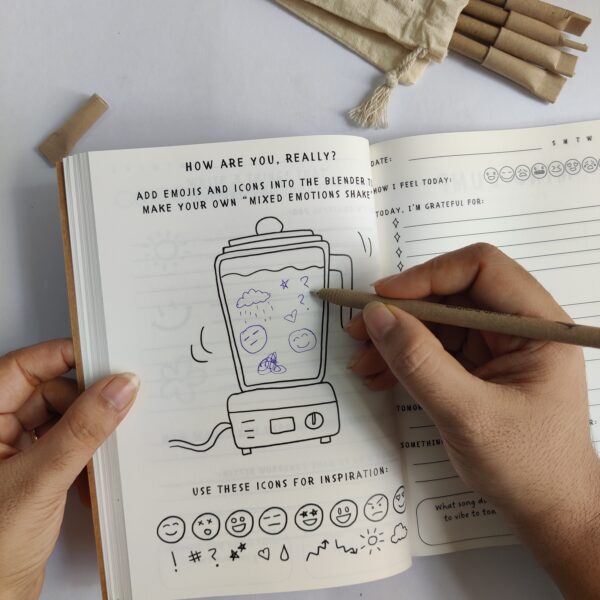 HOW ARE YOU, REALLY?
ADD EMOJIS AND ICONS INTO THE BLENDER
MAKE YOUR OWN "MIXED EMOTIONS SHAKE"
? 
?
USE THESE ICONS FOR INSPIRATION:
! # ?
S M T W
DATE:
HOW I FEEL TODAY:
TODAY, I'M GRATEFUL FOR:
What song
to vibe to